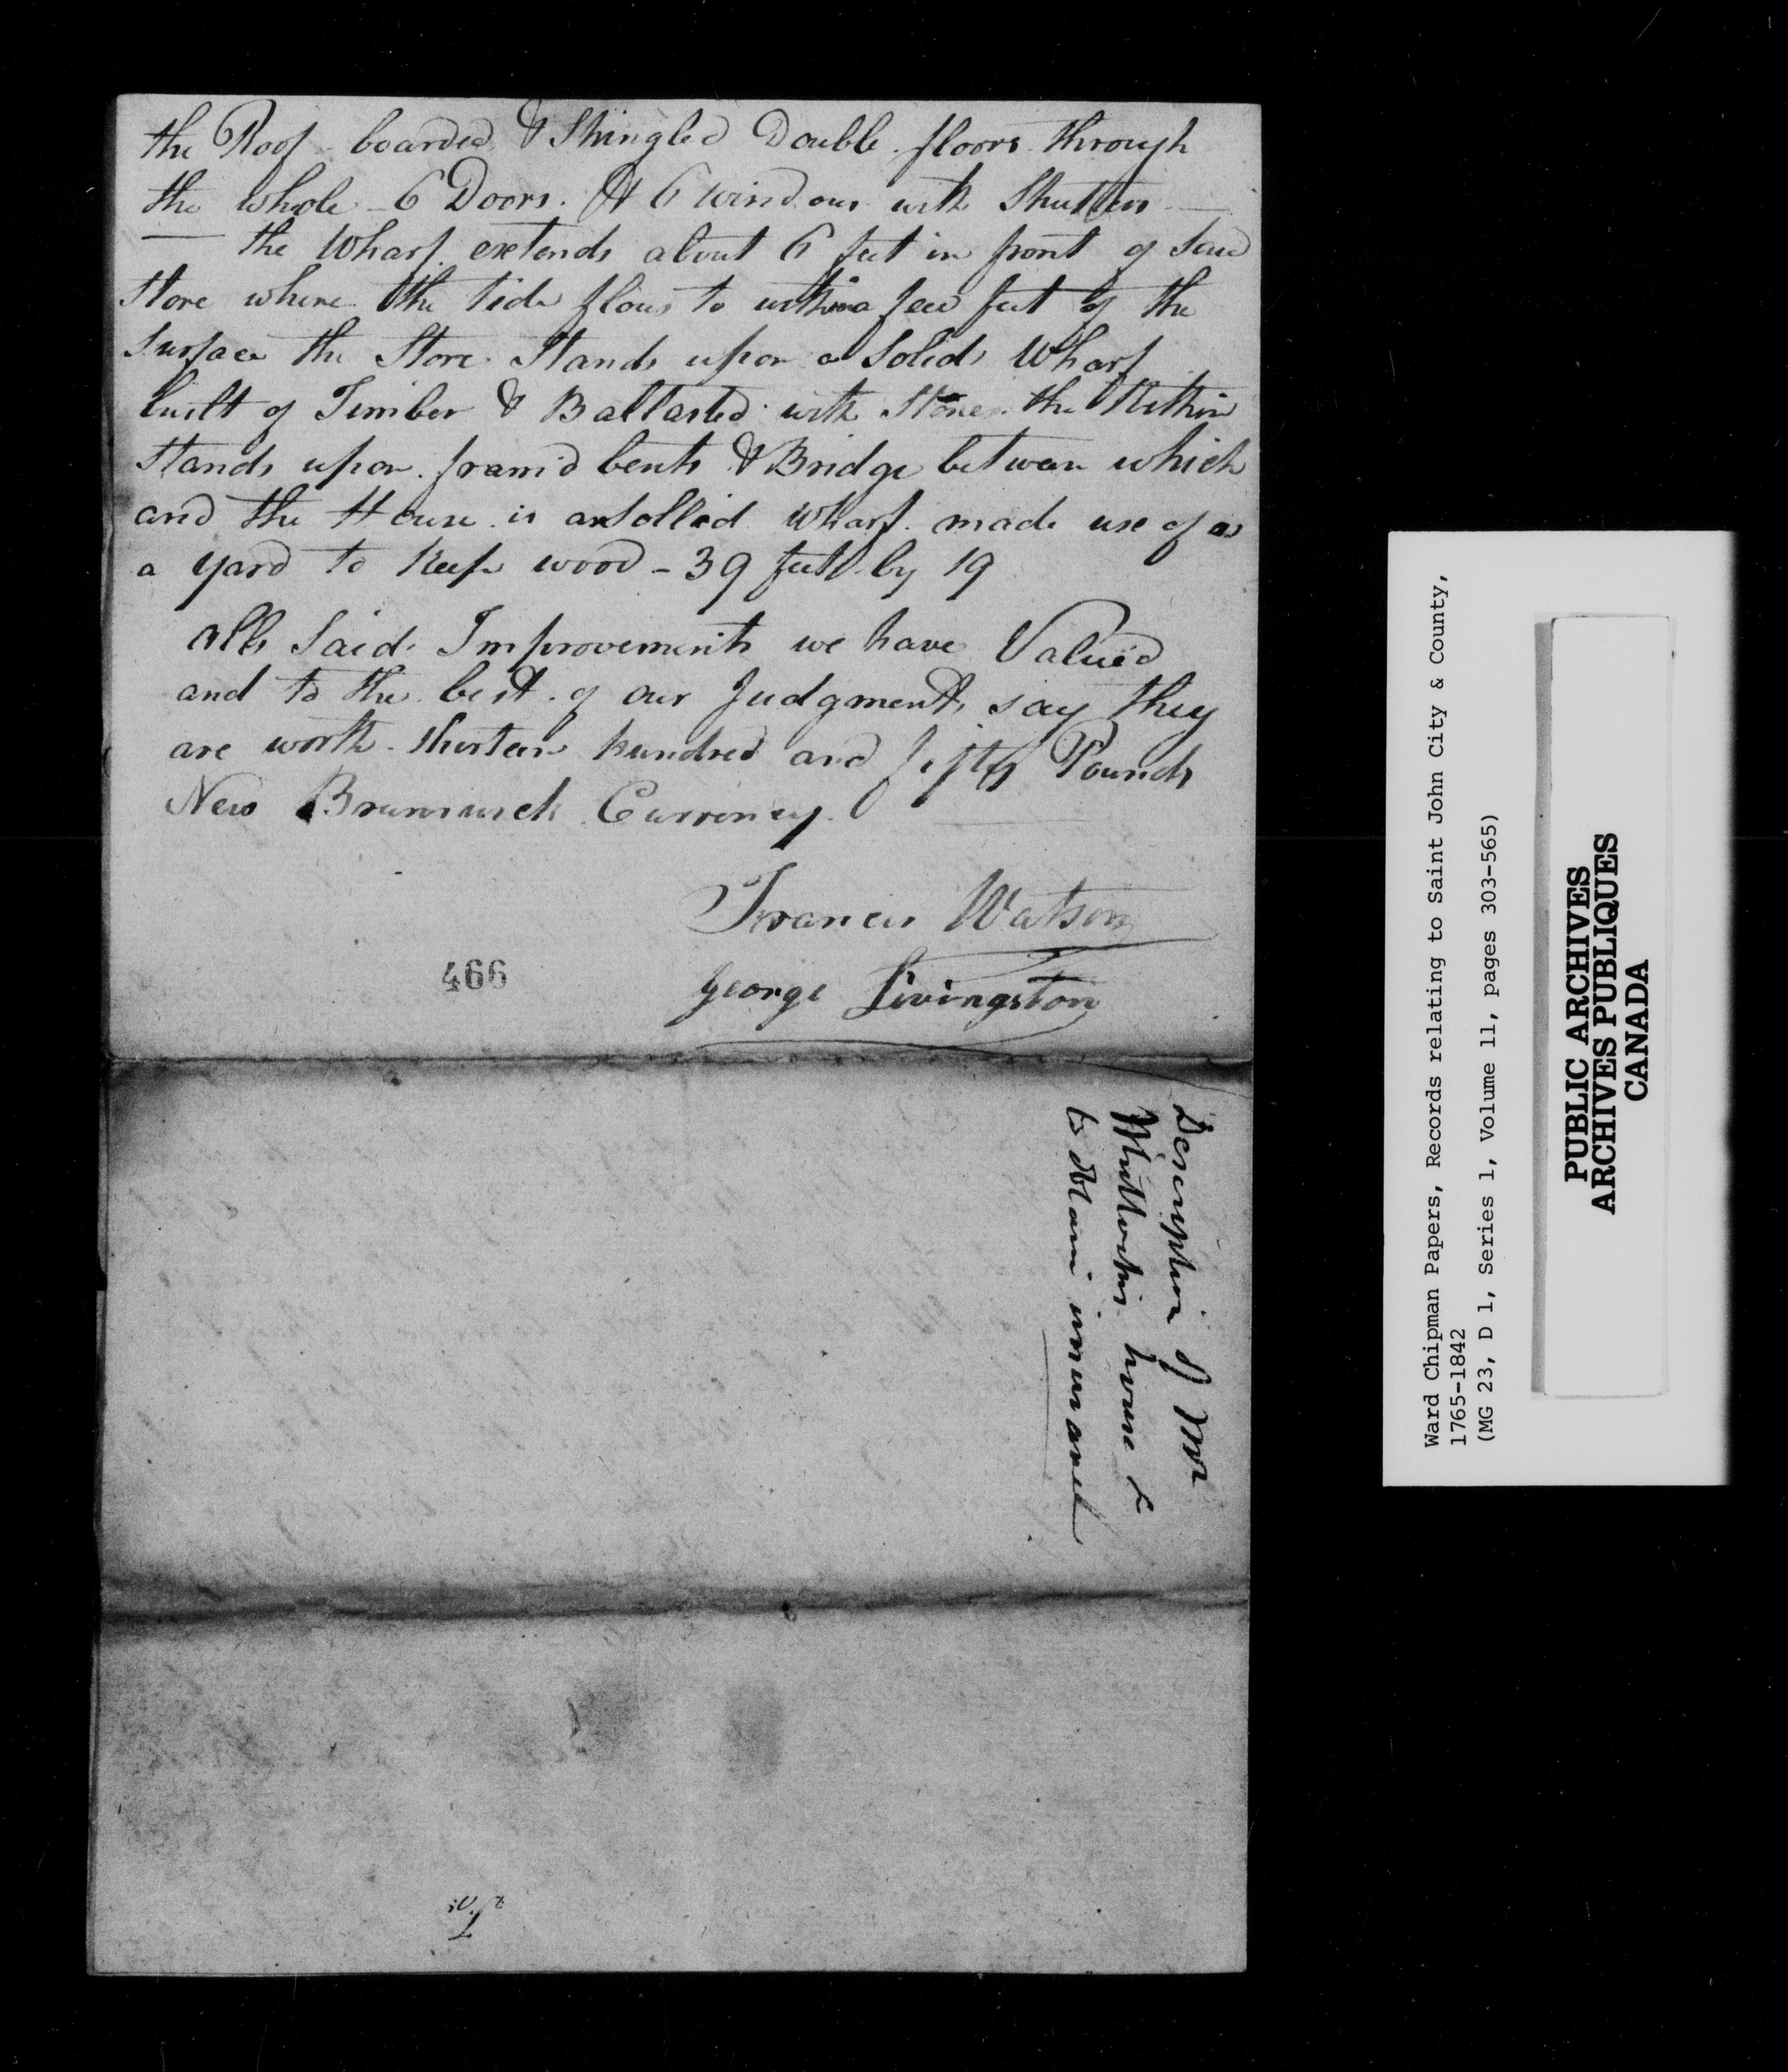 the Roof boarded & Shingled Double floors through
the whole - 6 Doors. & 6 windows with Shutters —
— the Wharf extends about 6 feet in front of Said
Store where the tide flows to within a few feet of the
Surface the Store Stands upon a Solid Wharf
built of Timber & Ballasted with Stones the Kitchin
Stands upon fram'd bents & Bridge between which
and the House is a Sollid Wharf made use of as
a yard to Keep wood - 39 feet by 19
All Said Improvements we have Valued
and to the best of our Judgment, say they
are worth thirteen hundred and fifty Pounds
New Brunswick Currency.
Francis Watson
George Livingston
466
Description of Mr
house &
to obtain insurance
Ward Chipman Papers, Records relating to Saint John City & County,
1765-1842
(MG 23, D 1, Series 1, Volume 11, pages 303-565)
PUBLIC ARCHIVES
ARCHIVES PUBLIQUES
CANADA